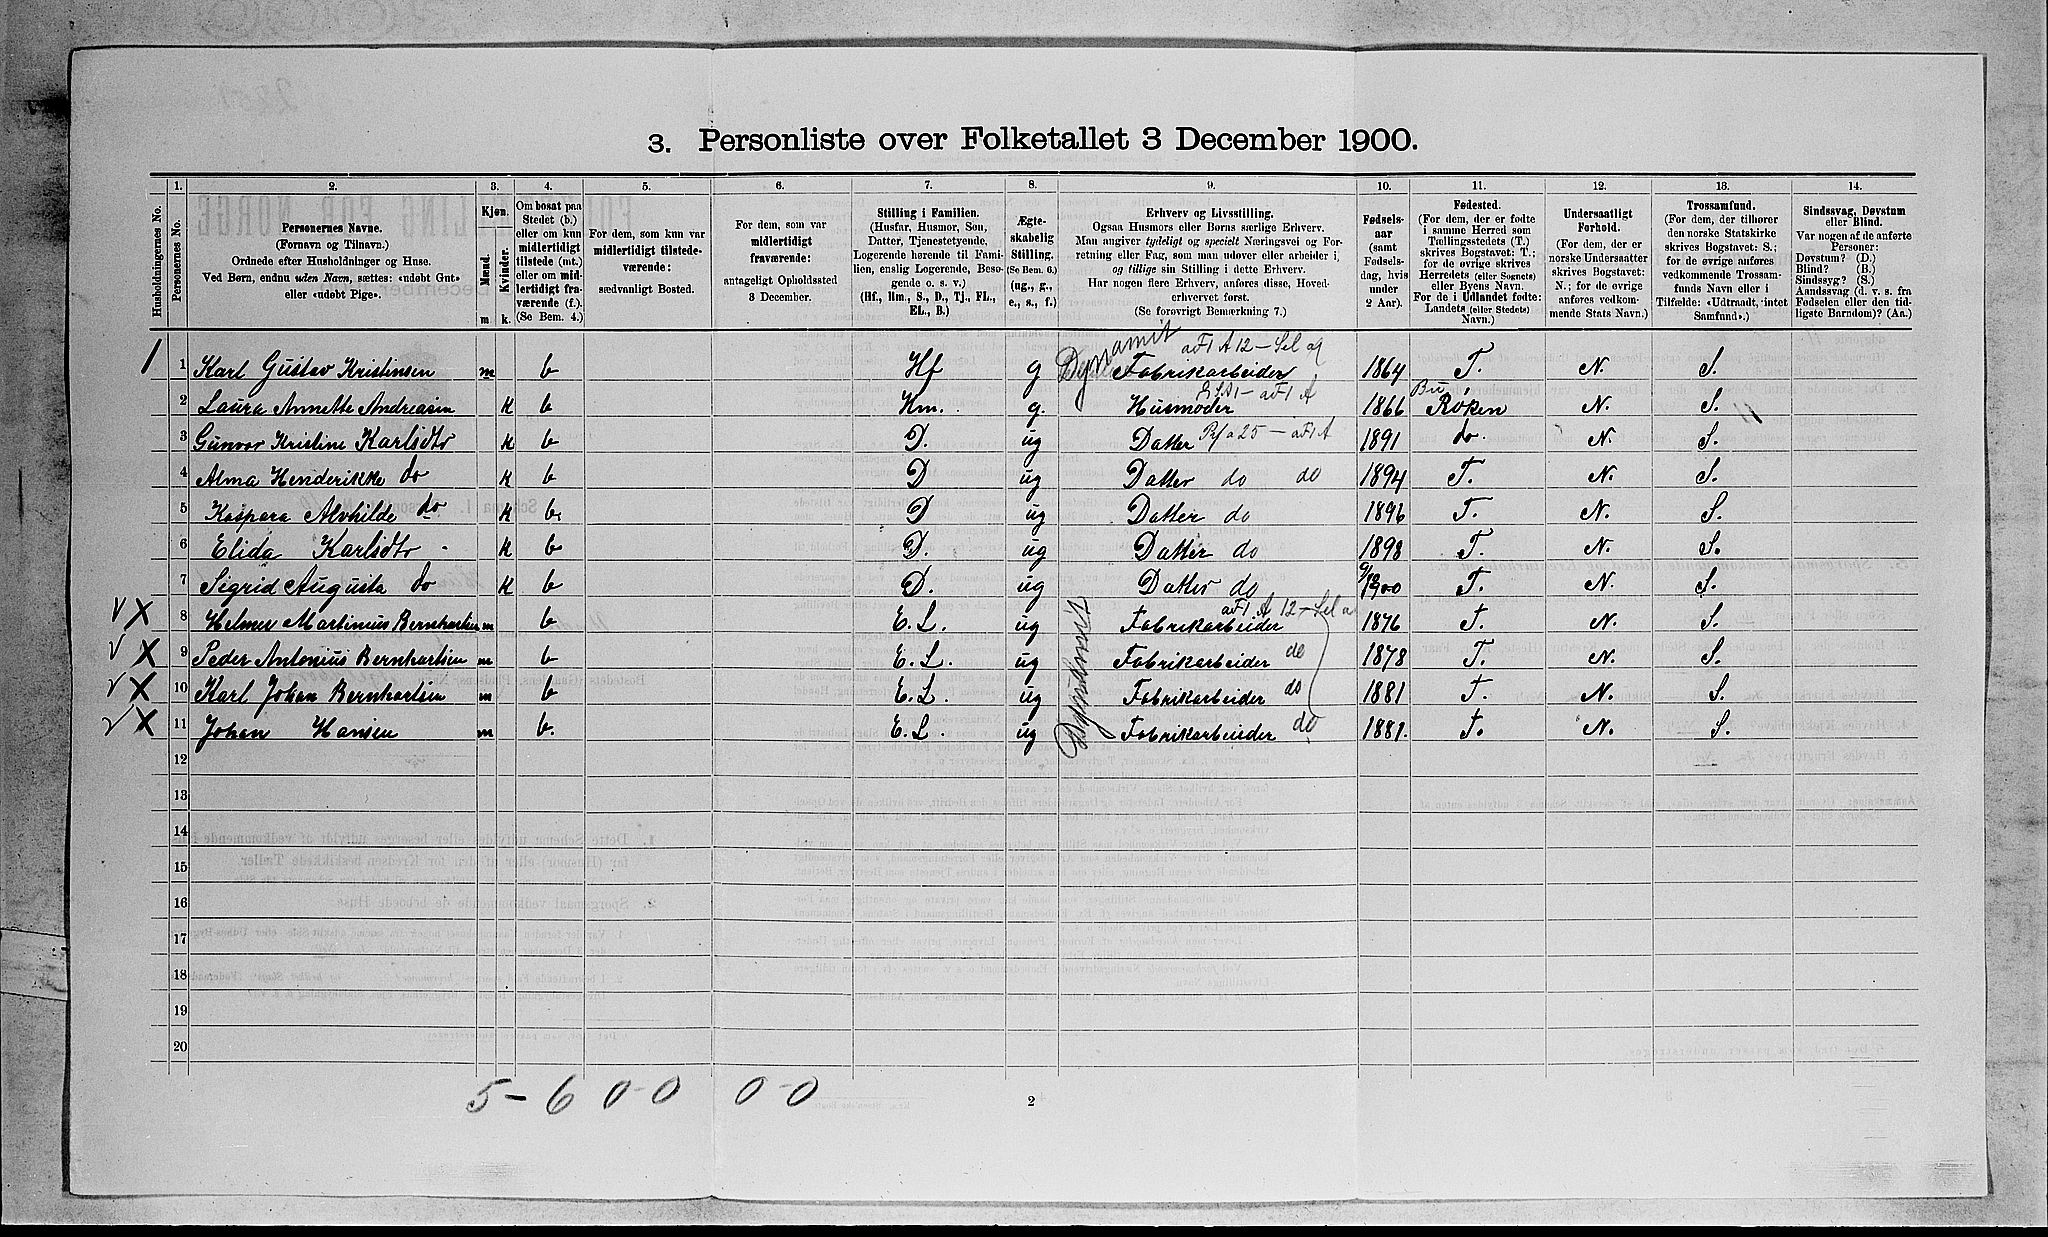 3. Personliste over Folketallet 3 December 1900.
Husholdningernes No.
1. Personernes No.
2. Personernes Navne. (Fornavn og Tilnavn.) Ordnede efter Husholdninger og Huse. Ved Børn, endnu uden Navn, sættes: «udøbt Gut» eller «udøbt Pige».
3. Kjøn. Mænd. m. Kvinder. k.
4. Om bosat paa Stedet (b.) eller om kun midlertidigt tilstede (mt.) eller om midlertidigt fraværende (f.). (Se Bem. 4.)
5. For dem, som kun var midlertidigt tilstedeværende: sædvanligt Bosted.
6. For dem, som var midlertidigt fraværende: antageligt Opholdssted 3 December.
7. Stilling i Familien. (Husfar, Husmor, Søn, Datter, Tjenestetyende, Logerende hørende til Familien, enslig Logerende, Besøgende o. s. v.) (Hf., Hm., S., D., Tj., FL., EL., B.)
8. Ægteskabelig Stilling. (Se Bem. 6.) (ug., g., e., s., f.)
9. Erhverv og Livsstilling. Ogsaa Husmors eller Børns særlige Erhverv. Man angiver tydeligt og specielt Næringsvei og Forretning eller Fag, som man udøver eller arbeider i, og tillige sin Stilling i dette Erhverv. Har nogen flere Erhverv, anføres disse, Hovederhvervet først. (Se forøvrigt Bemærkning 7.)
10. Fødselsaar (samt Fødselsdag, hvis under 2 Aar).
11. Fødested. (For dem, der er fødte i samme Herred som Tællingsstedets (T.) skrives Bogstavet: T.; for de øvrige skrives Herredets (eller Sognets) eller Byens Navn. For de i Udlandet fødte: Landets (eller Stedets) Navn.)
12. Undersaatligt Forhold. (For dem, der er norske Undersaatter skrives Bogstavet: N.; for de øvrige anføres vedkommende Stats Navn.)
13. Trossamfund. (For dem, der tilhører den norske Statskirke skrives Bogstavet: S.; for de øvrige anføres vedkommende Trossamfunds Navn eller i Tilfælde: «Udtraadt, intet Samfund».)
14. Sindssvag, Døvstum eller Blind. Var nogen af de anførte Personer: Døvstum? (D.) Blind? (B.) Sindssyg? (S.) Aandssvag (d. v. s. fra Fødselen eller den tidligste Barndom)? (Aa.)
1 1 Karl Gustav Kristinsen m b Hf g Dynamit Fabrikarbeider 1864 T. N. S.
2 Laura Annette Andreasen k b Hm. g. Husmoder 1866 Bu Røken N. S.
3 Gunvor Kristine Karlsdtr k b D. ug Datter 1891 do. N. S.
4 Alma Henderikke do k b D ug Datter do do 1894 T. N. S.
5 Kaspara Alvhilde do k b. D ug Datter do 1896 T. N. S.
6 Elida Karlsdtr k b D. ug Datter do 1898 T. N. S.
7 Sigrid Augusta do k b D. ug Datter do 1900 T. N. S.
V X 8 Helmer Martinius Bernhartsen m b E. L. ug Fabrikarbeider 1876 T. N. S.
V X 9 Peder Antonius Bernhartsen m b E. L. ug Fabrikarbeider do 1878 T. N. S.
V X 10 Karl Johan Bernhartsen m b E. L. ug Fabrikarbeider do 1881 T. N. S.
V X 11 Johan Hansen m b. E. L. ug Fabrikarbeider do 1881. T. N. S.
12
13
14
15
16
17
18
19
20
5-6 0-0 0-0
2